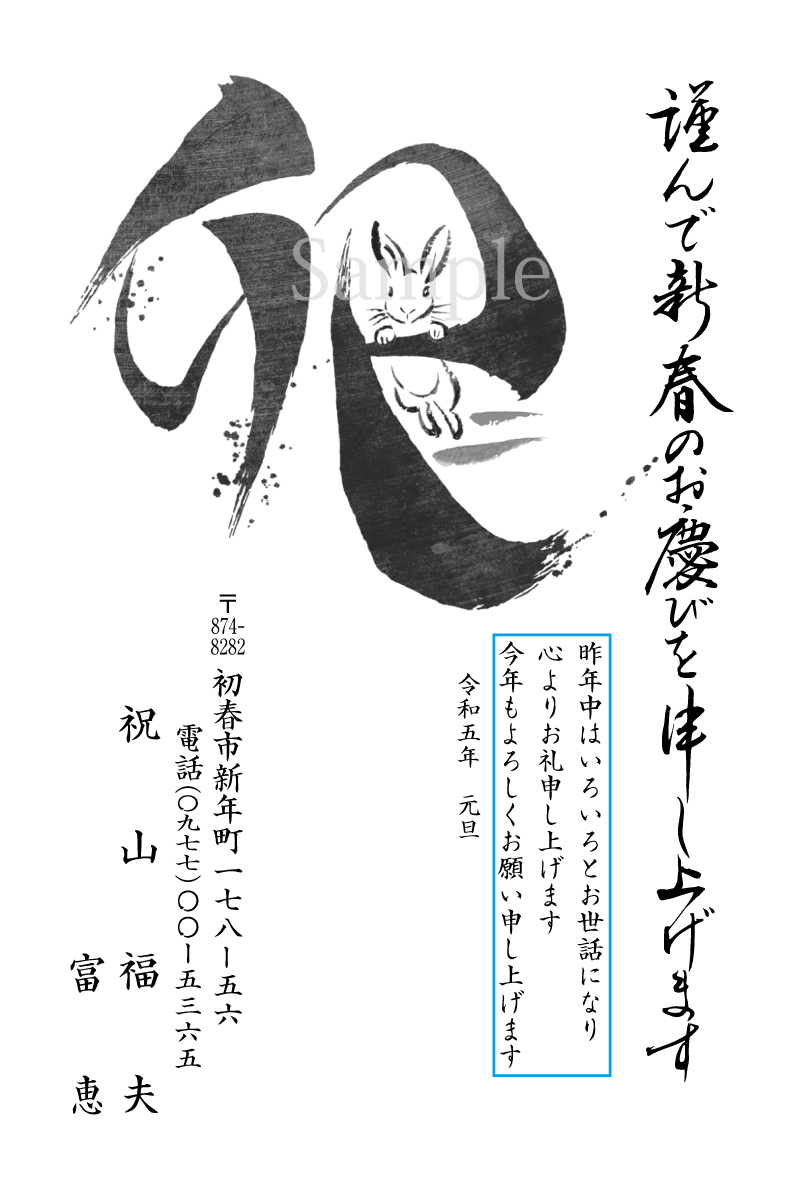 謹んで新春のお慶びを申し上げます
卯
Sample
昨年中はいろいろとお世話になり
心よりお礼申し上げます
今年もよろしくお願い申し上げます
令和五年　元旦
〒874-8282
初春市新年町一七八ー五六
電話(〇九七七)〇〇ー五三六五
祝山福夫
富恵